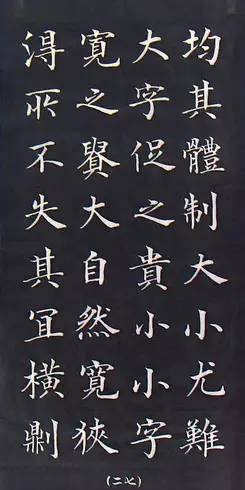 均其體制大小尤難
大字促之貴小小字
寛之貴大自然寛狹
得所不失其宜橫
(二七)